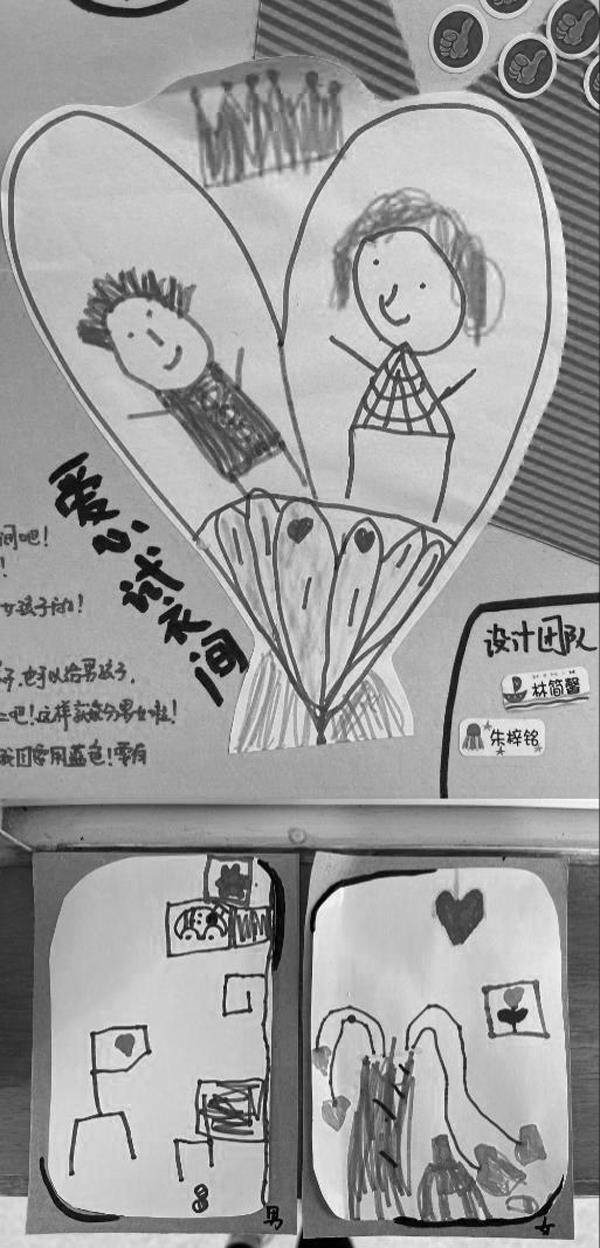 爱心试衣间
间吧！
！
女孩子的！
子，也可以给男孩子，
吧！这样就能分男女啦！
用蓝色！
设计团队
林简馨
朱梓铭
男
女